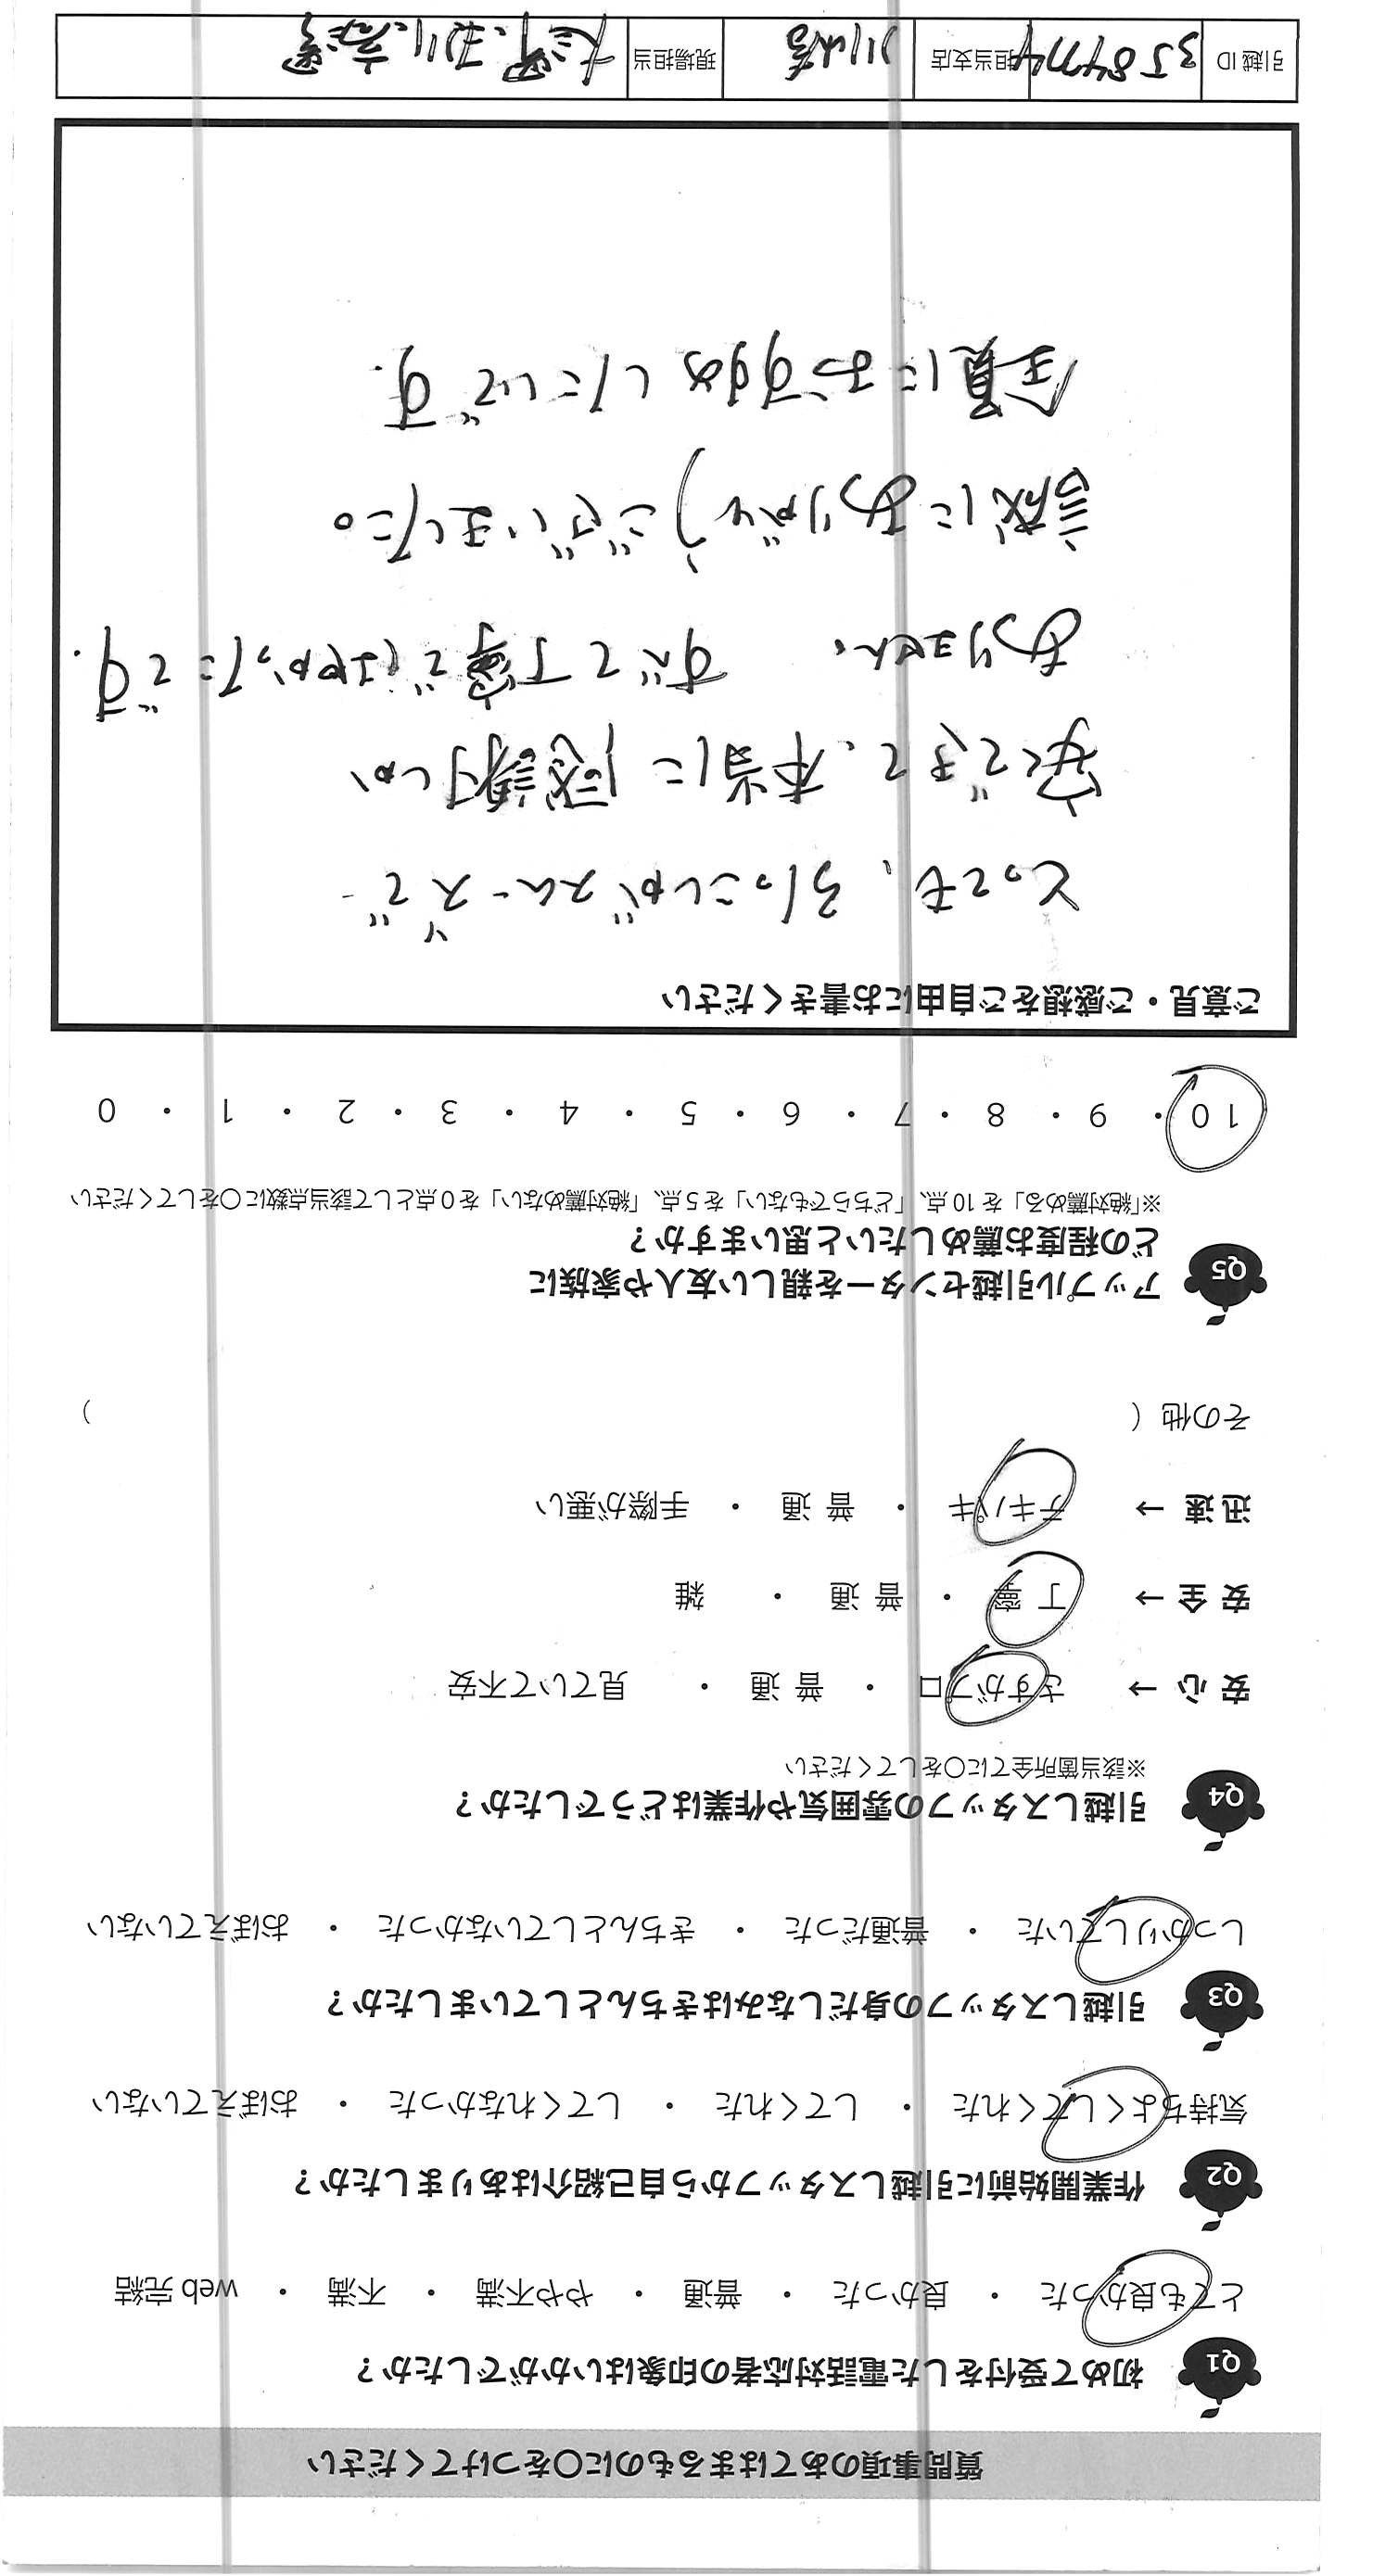 質問事項のあてはまるものに○をつけてください
Q1 初めて受付をした電話対応者の印象はいかがでしたか？
とても良かった ・ 良かった ・ 普通 ・ やや不満 ・ 不満 ・ web完結
Q2 作業開始前に引越しスタッフから自己紹介はありましたか？
気持ちよくしてくれた ・ してくれた ・ してくれなかった ・ おぼえていない
Q3 引越しスタッフの身だしなみはきちんとしていましたか？
しっかりしていた ・ 普通だった ・ きちんとしていなかった ・ おぼえていない
Q4 引越しスタッフの雰囲気や作業はどうでしたか？
※該当箇所全てに○をしてください
安心 → さすがプロ ・ 普通 ・ 見ていて不安
安全 → 丁寧 ・ 普通 ・ 雑
迅速 → テキパキ ・ 普通 ・ 手際が悪い
その他（ ）
Q5 アップル引越センターを親しい友人や家族に
どの程度お薦めしたいと思いますか？
※「絶対薦める」を10点、「どちらでもない」を5点、「絶対薦めない」を0点として該当点数に○をしてください
10 ・ 9 ・ 8 ・ 7 ・ 6 ・ 5 ・ 4 ・ 3 ・ 2 ・ 1 ・ 0
ご意見・ご感想をご自由にお書きください
とっても、引っこしがスムーズで
安くできて、本当に感謝しか
ありません。 すべて丁寧ではやかったです.
誠にありがとうございました。
全員におすすめしたいです.
引越ID 担当支店 川崎 現場担当